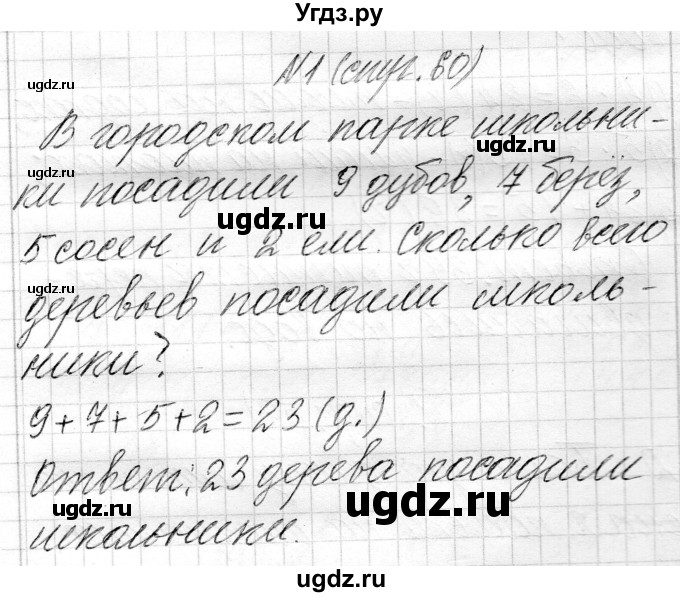 Угдз.ру
№1 (стр. 60)
ugdz.ru
В городском парке школьни-
ugdz.ru
ugdz.ru
ки посадили 9 дубов, 7 берёз,
ugdz.ru
5 сосен и 2 ели. Сколько всего
ugdz.ru
деревьев посадили школь-
ники?
ugdz.ru
9+7+5+2=23 (д.)
Ответ: 23 дерева посадили
ugdz.ru
ugdz.ru
школьники.
ugdz.ru